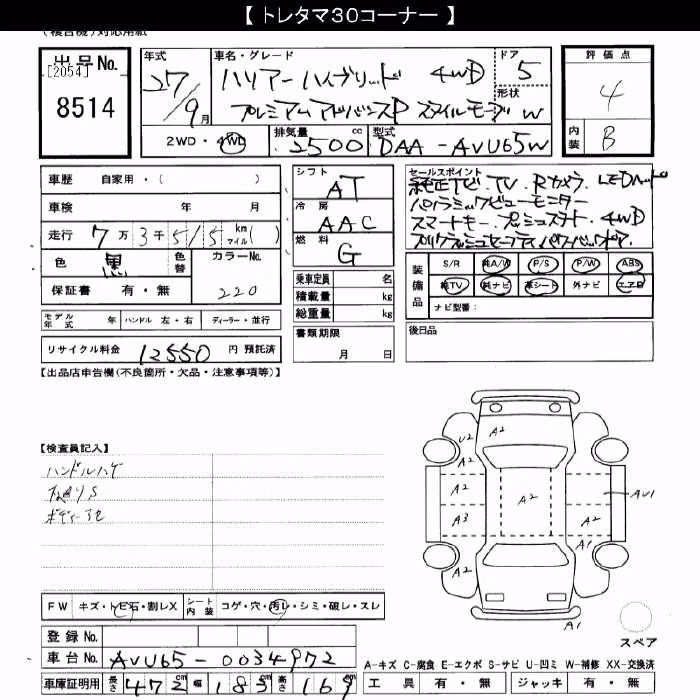 【 トレタマ30コーナー 】
(複合機)対応用紙
出品No.
[2054]
8514
年式
27/9月
車名・グレード
ハリアーハイブリッド 4WD
プレミアムアドバンスP スタイルモーヴ W
ドア
5
形状
評価点
4
内装
B
2WD・4WD
排気量
2500cc
型式
DAA-AVU65W
車歴 自家用・( )
車検 年 月
走行 7万3千515 km マイル( )
色 黒 色替 カラーNo.
220
保証書 有・無
モデル年式 年 ハンドル 左・右 ディーラー・並行
リサイクル料金 12550 円 預託済
シフト
AT
冷房
AAC
燃料
G
乗車定員 名
積載量 kg
総重量 kg
書類期限
月 日
セールスポイント
純正ナビ.TV.Rカメラ.LEDヘッド
パノラミックビューモニター
スマートキー.プッシュスタート.4WD
プリクラッシュセーフティ.パワーバックドア.
装備品
S/R 純A/W P/S P/W ABS
純TV 純ナビ 革シート 外ナビ エアB
ナビ型番:
後日品
【出品店申告欄(不良箇所・欠品・注意事項等)】
【検査員記入】
ハンドルハゲ
ボディー
FW キズ・トビ石・割レX シート内装 コゲ・穴・汚レ・シミ・破レ・スレ
登録No.
車台No. AVU65-0034972
車庫証明用 長さ 472cm 幅 183cm 高さ 169
A2
U2
A2
A2
A2
AU1
A3
A2
A1
A2
A1
スペア
A-キズ C-腐食 E-エクボ S-サビ U-凹ミ W-補修 XX-交換済
工具 有・無 ジャッキ 有・無